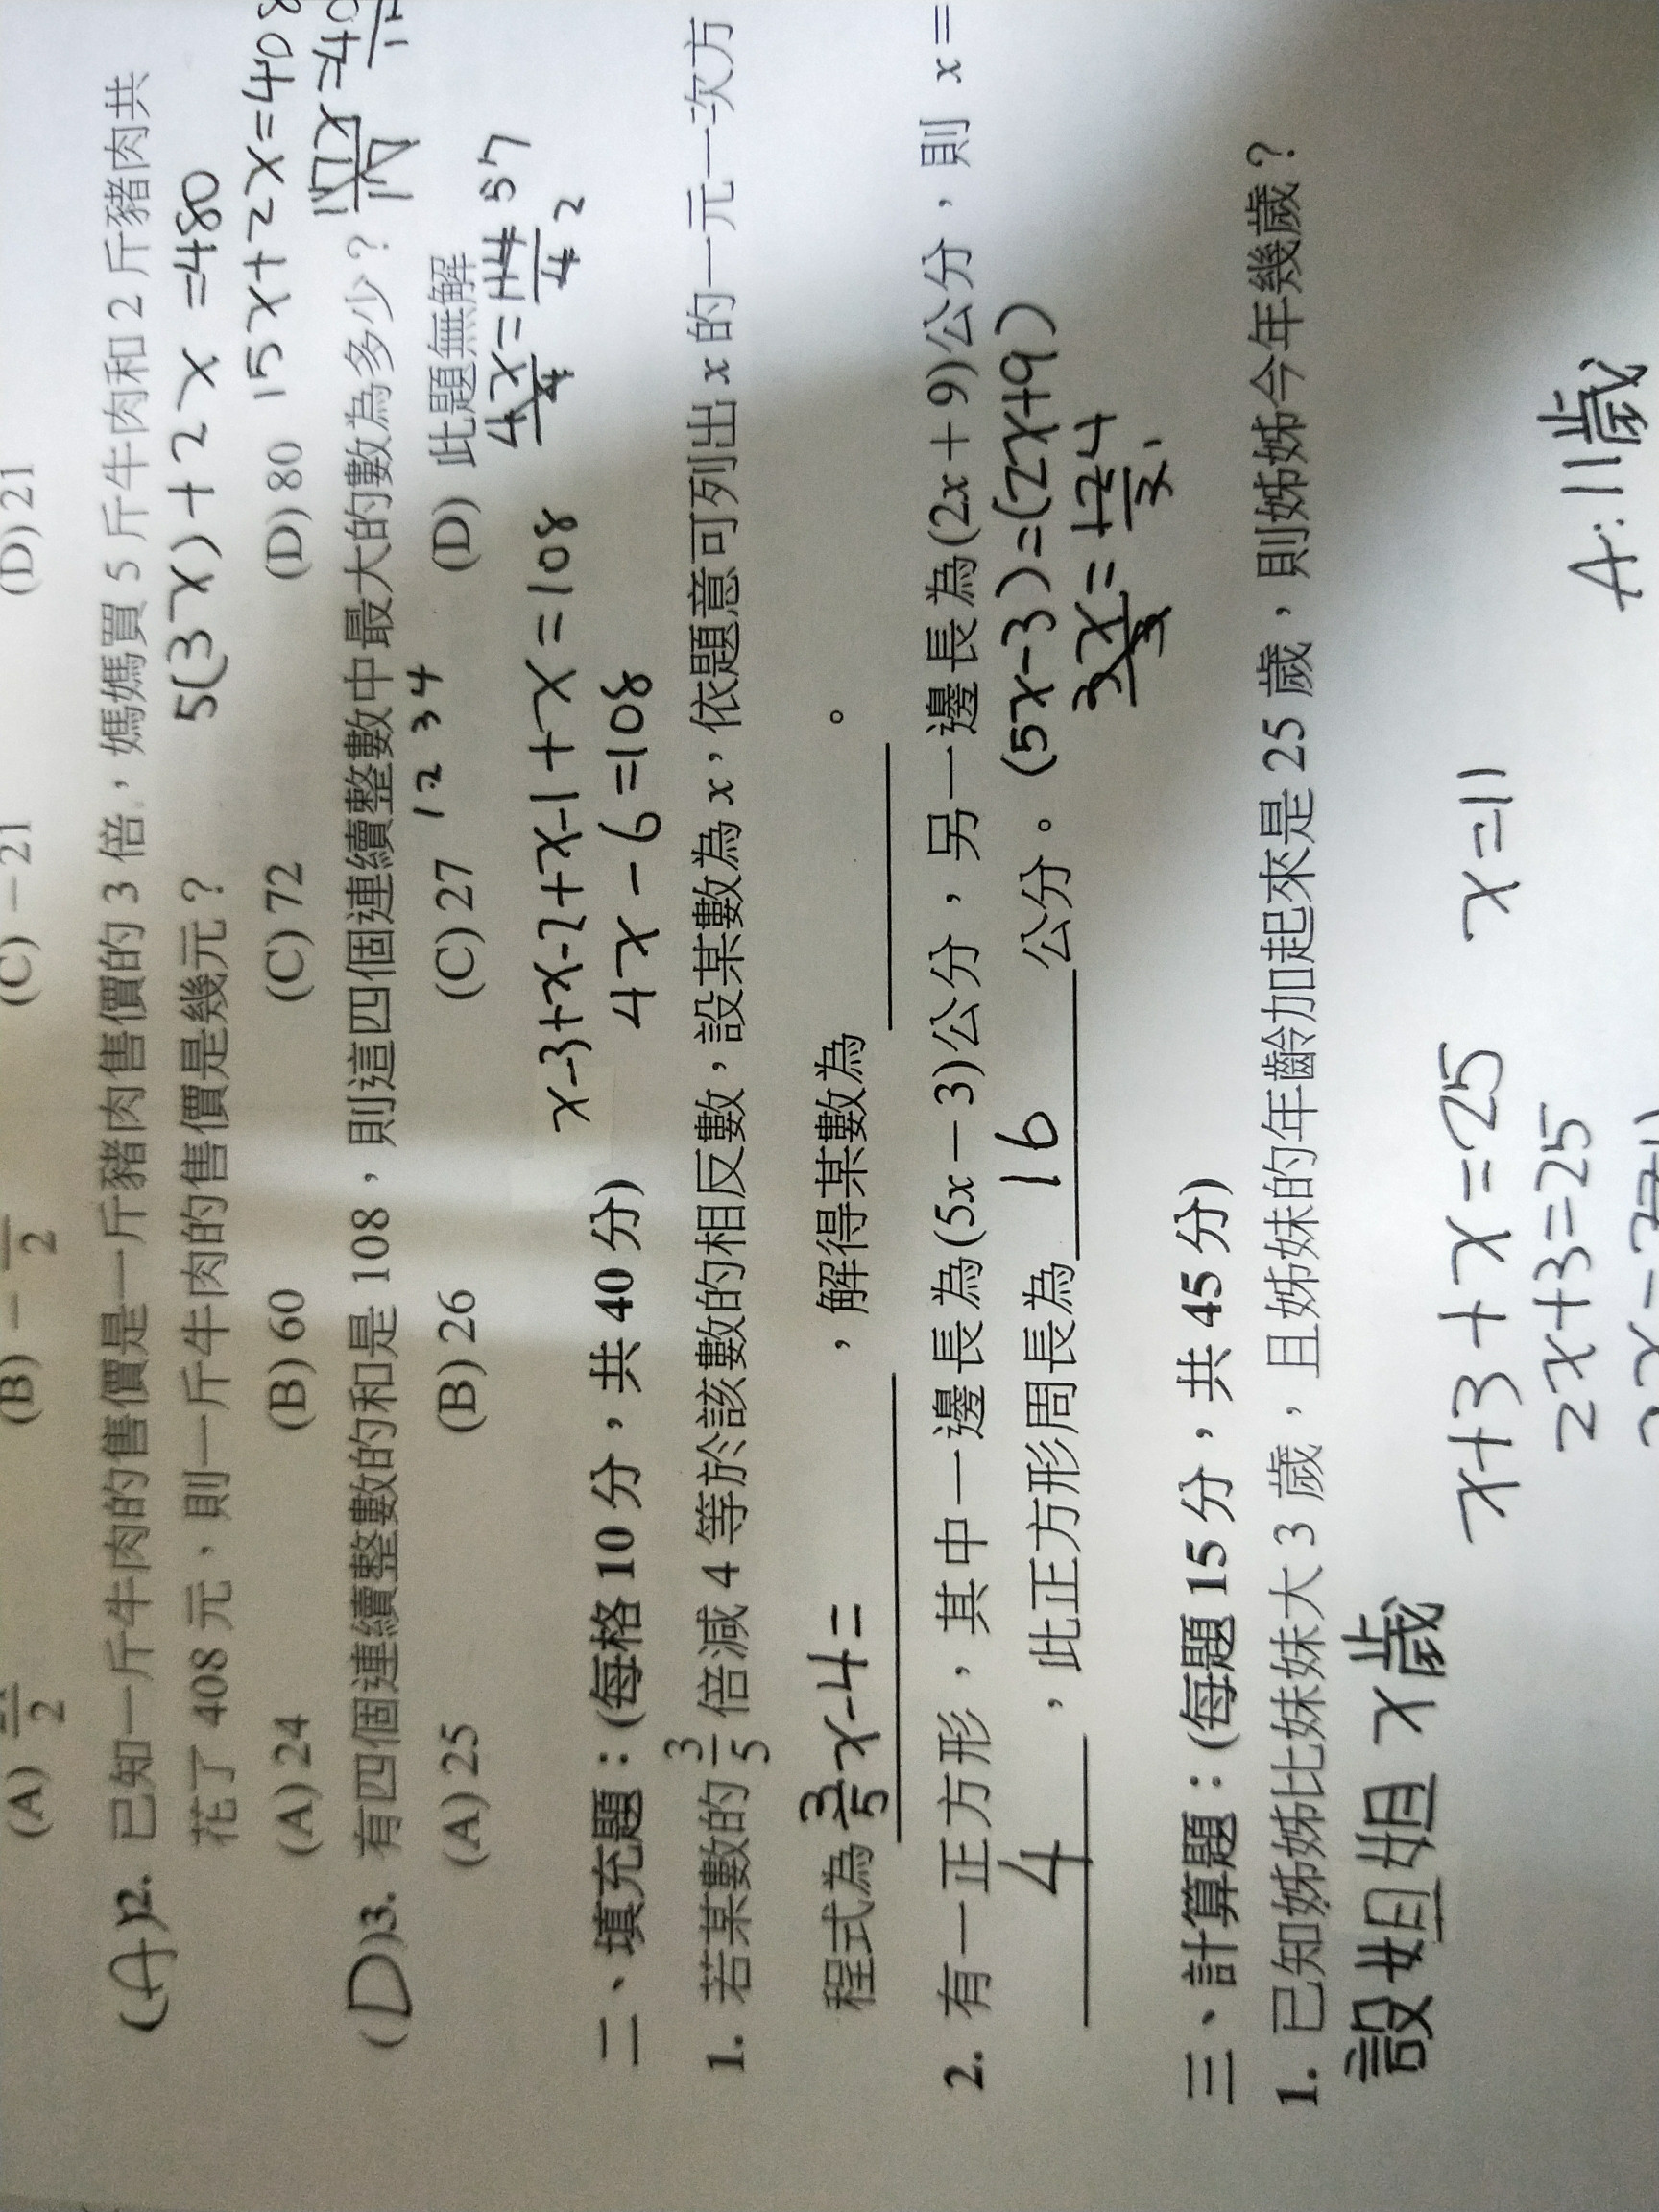 (A) 2 (B) − 2 (C) −21 (D) 21
(A)2. 已知一斤牛肉的售價是一斤豬肉售價的 3 倍,媽媽買 5 斤牛肉和 2 斤豬肉共
花了 408 元,則一斤牛肉的售價是幾元?
5(3x)+2x=480
(A) 24 (B) 60 (C) 72 (D) 80
15x+2x=408
(D)3. 有四個連續整數的和是 108,則這四個連續整數中最大的數為多少?
1 2 3 4
(A) 25 (B) 26 (C) 27 (D) 此題無解
x-3+x-2+x-1+x=108
4x-6=108
二、填充題:(每格 10 分,共 40 分)
1. 若某數的 3/5 倍減 4 等於該數的相反數,設某數為 x,依題意可列出 x 的一元一次方
程式為 3/5x-4= ,解得某數為 。
2. 有一正方形,其中一邊長為(5x−3)公分,另一邊長為(2x+9)公分,則 x=
4 ,此正方形周長為 16 公分。(5x-3)=(2x+9)
三、計算題:(每題 15 分,共 45 分)
1. 已知姊姊比妹妹大 3 歲,且姊妹的年齡加起來是 25 歲,則姊姊今年幾歲?
x歲
x+3+x=25 x=11
2x+3=25
A:11歲